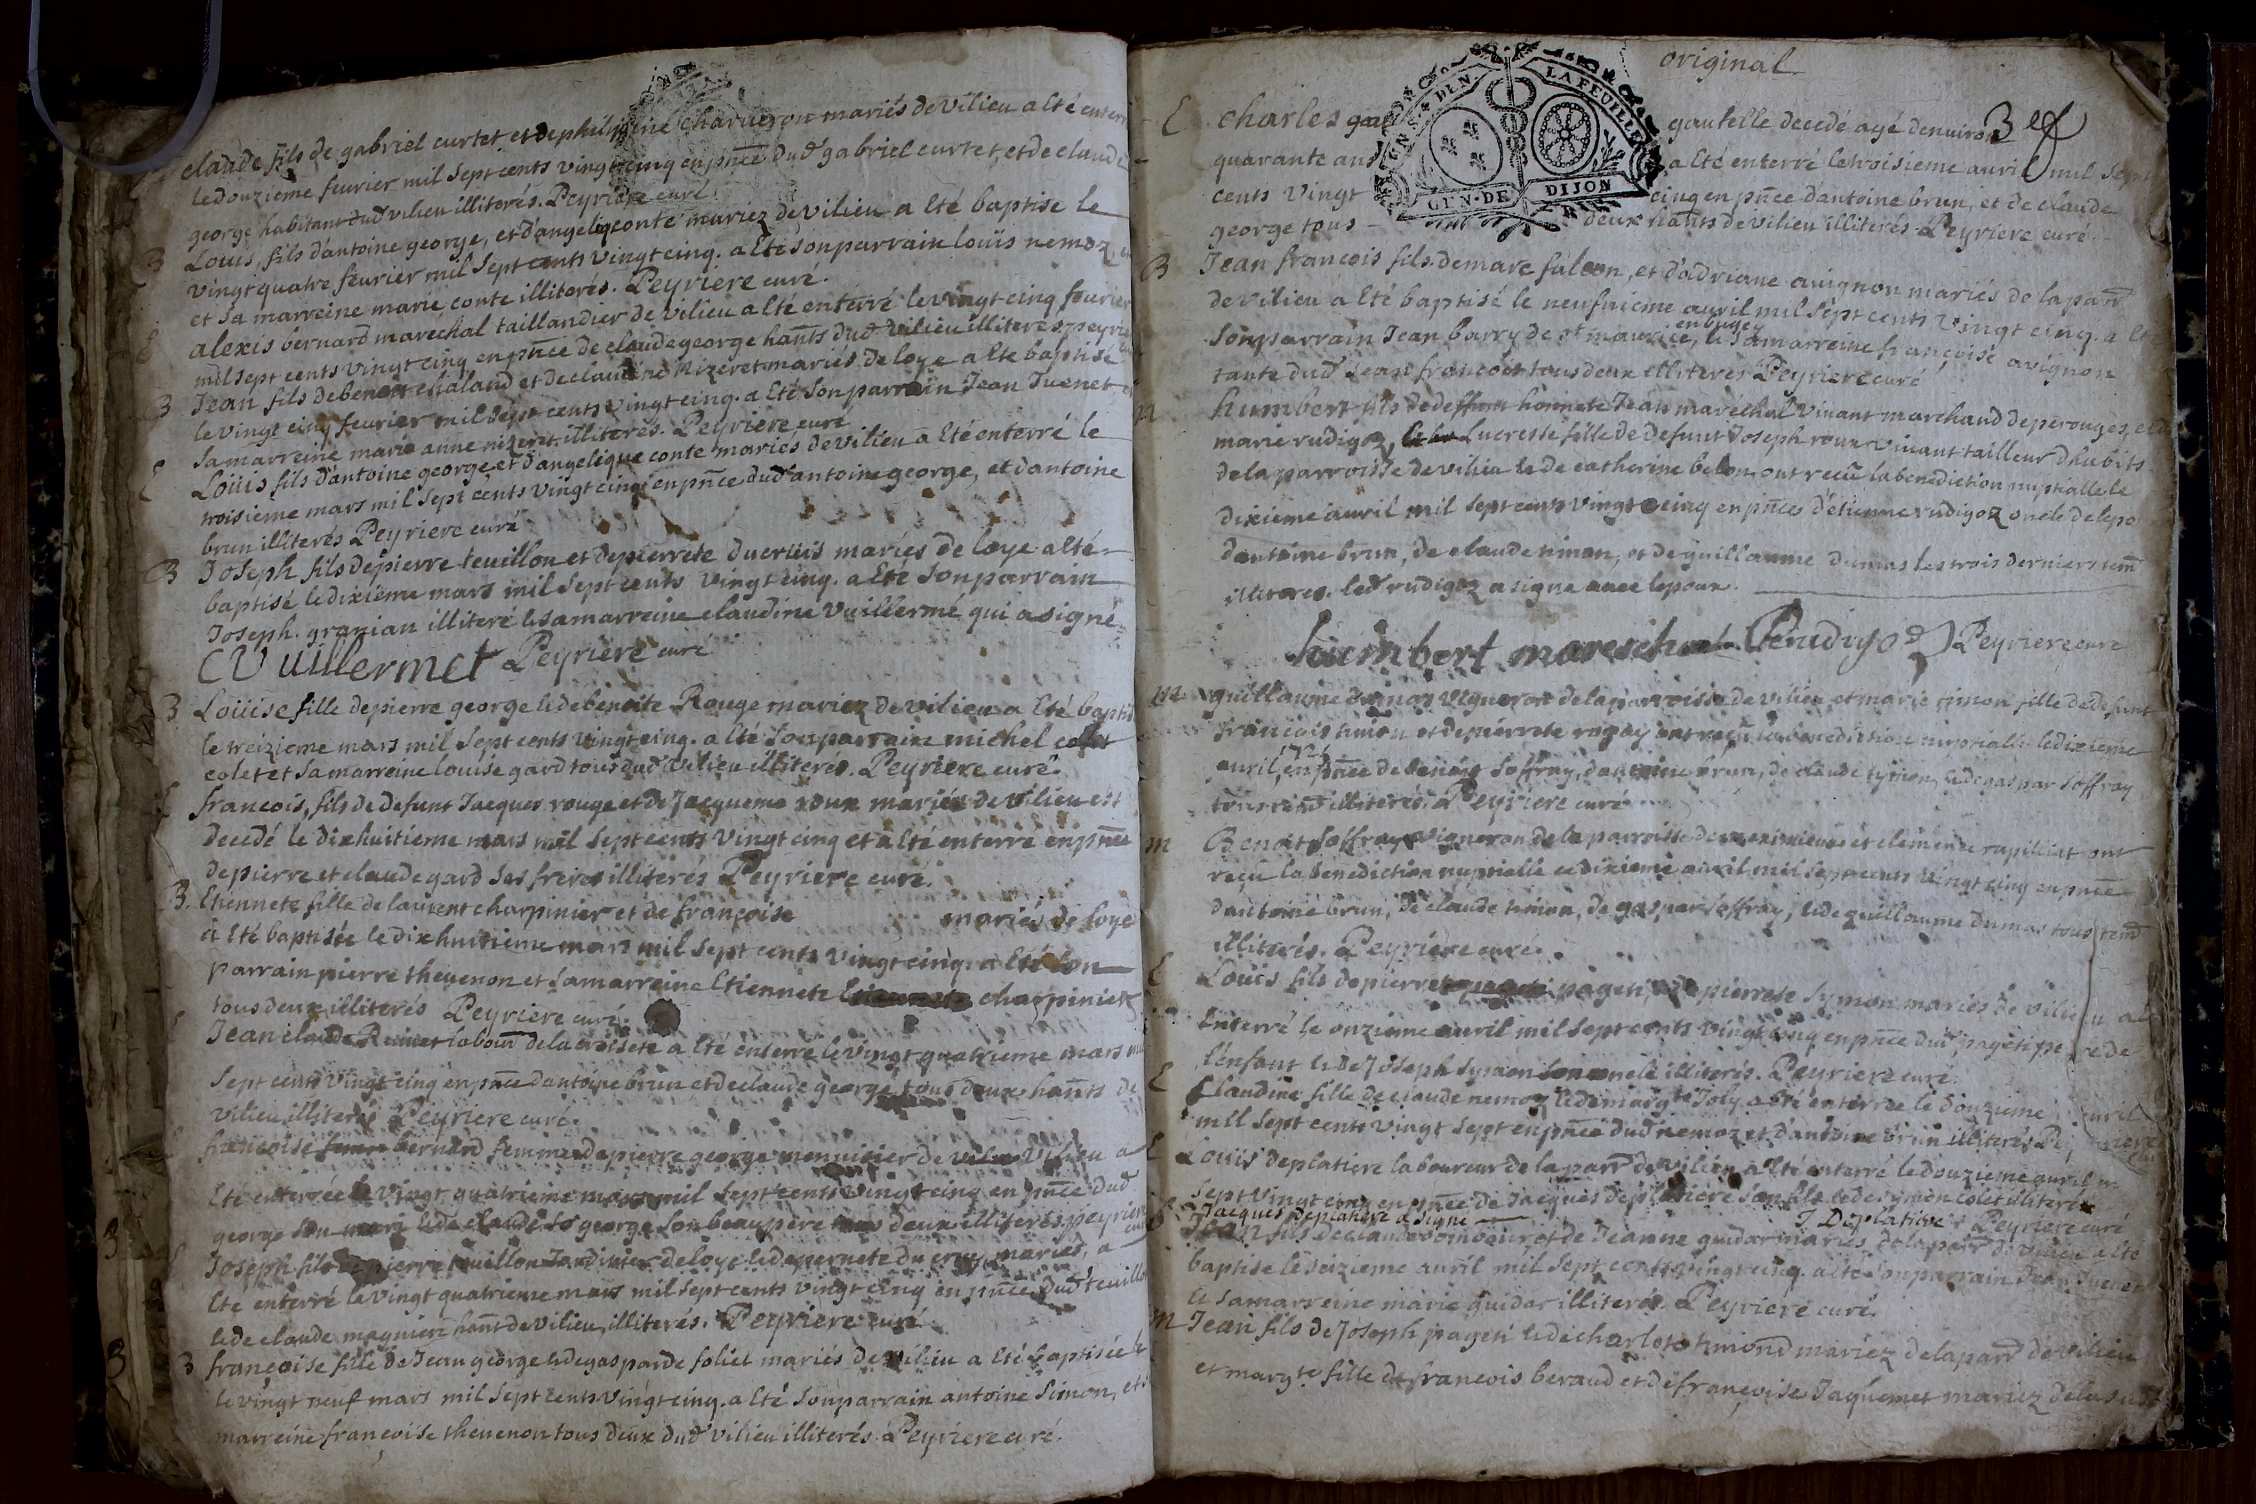 claude fils de gabriel curtet et de philipine charueyron mariés de vilieu a Eté enterré
le douzieme feurier mil sept cents vingt cinq en pnce dud gabriel curtet, et de claude
george habitant dud vilieu illiterés. Peyriere curé
B Louis, fils dantoine george, et d'angelique conte mariez de vilieu a Eté baptisé le
vingt quatre feurier mil sept cents vingt cinq. a Eté son parrain louis nemoz,
et sa marreine marie conte illiterés. Peyriere curé.
E alexis bernard marechal taillandier de vilieu a Eté enterré le vingt cinq feurier
mil sept cents vingt cinq en pnce de claude george hants dud vilieu illiteres peyriere
B Jean fils de benoit chaland et de claudine Nizeret mariés de loye a Eté baptisé
le vingt cinq feurier mil sept cents vingt cinq. a Eté son parrain Jean Juenet et
sa marreine marie anne nizeret illiterés. Peyriere curé
E Louis fils d'antoine george et d'angelique conte mariés de vilieu a Eté enterré le
troisieme mars mil sept cents vingt cinq en pnce dud antoine george, et dantoine
brun illiterés Peyriere curé
B Joseph fils de pierre teuillon et de pierrete ducruis mariés de loye a Eté
baptisé le dixieme mars mil sept cents vingt cinq. a Eté son parrain
Joseph granjan illiteré & sa marreine claudine Vuillermé qui a signé
C Vuillermet Peyriere curé
B Louise fille de pierre george & de benoite Rouge mariez de vilieu a Eté baptisée
le treizieme mars mil sept cents vingt cinq. a Eté son parrain michel colet
colet et sa marreine louise gard tous dud vilieu illiterés. Peyriere curé.
E francois, fils de defunt Jacques rouge et de Jacqueme roux mariés de vilieu est
decedé le dixhuitieme mars mil sept cents vingt cinq et a Eté enterré en pnce
de pierre et claude gard ses freres illiterés Peyriere curé.
B. Etiennete fille de laurent charpinier et de françoise mariés de loye
a Eté baptisée le dixhuitieme mars mil sept cents vingt cinq. a Eté son
parrain pierre theuenon et sa marreine Etiennete charpinier
tous deux illiterés Peyriere curé.
Jean claude Reinet labour de la croisete a Eté enterré le vingt quatrieme mars mil
sept cents vingt cinq en pnce d'antoine brun et de claude george, tous deux hants de
vilieu illiterés Peyriere curé.
francoise bernard femme de pierre george menuisier de vilieu a
Eté enterrée le vingt quatrieme mars mil sept cents vingt cinq en pnce dud
george son mari & de claude george son beaupere tous deux illiterés, peyriere curé
Joseph fils de pierre teuillon Jardinier de loye & de pernete du cruy mariés, a
Eté enterré le vingt quatrieme mars mil sept cents vingt cinq en pnce dud teuillon
& de claude magnien hant de vilieu, illiterés. Peyriere curé
B françoise fille de Jean george & de gasparde foliet mariés de vilieu a Eté baptisée le
le vingt neuf mars mil sept cents vingt cinq. a Eté son parrain antoine Simon, et sa
marreine françoise theuenon tous deux dud vilieu illiterés. Peyriere curé.
original
3 ef
GEN. DE DIJON
LA FEUILLE
E charles gautelle decedé agé denuiron
quarante ans a Eté enterré le troisieme auril mil sept
cents vingt cinq en pnce d'antoine brun, et de claude
george tous deux hants de vilieu illiterés Peyriere curé
B Jean francois fils de marc falcon, et d'adriane auignon mariés de la parr
de vilieu a Eté baptisé le neufuieme auril mil sept cents vingt cinq. a Eté
son parrain Jean barry de st maurice, en bugey & sa marreine françoise avignon
tante dud Jean francois tous deux illiterés Peyriere curé
m humbert fils de deffunt honnete Jean maréchal viuant marchand de perouges, et de
marie rudigoz, Lucresse fille de defunt Joseph roux viuant tailleur d'habits
de la parroisse de vilieu & de catherine belon ont reçu la benediction nuptialle le
dixieme auril mil sept cents vingt cinq en pnces d'étienne rudigoz oncle de lepo
dantoine brun, de claude timon, et de guillaume dumas les trois derniers tem
illiteres. led rudigoz a signe auec lepoux.
humbert mareschal E rudigoz Peyriere curé
m guillaume dumas vigneron de la parroisse de vilieu et marie timon fille de defunt
francois timon et de pierrete rogay ont reçu la benediction nuptialle le dixieme
auril, en pnce de benoit Joffray, d'antoine brun, de claude tymon, & de gaspar Joffray
tous illiterés. Peyriere curé
m Benoit Joffray vigneron de la parroisse de et clemence rapilliat ont
reçu la benediction nuptialle le dixieme auril mil sept cents vingt cinq en pnce
dantoine brun, de claude timon, de gaspar Joffray, & de guillaume dumas tous tem
illiterés. Peyriere curé.
E Louis fils de pierre pageti, & de pierrete Symon mariés de vilieu a Eté
Enterré le onzieme auril mil sept cents vingt cinq en pnce dud pageti pere de
l'enfant & de Joseph Symon son oncle illiterés. Peyriere curé.
E Claudine fille de claude nemoz & de margte Joly a Eté enterrée le douzieme auril
mil sept cents vingt sept en pnce dud nemoz et d'antoine brun illiterés Peyriere curé
E Louis deplatiere laboureur de la parr de vilieu a Eté enterré le douzieme auril m
sept vingt cinq en pnce de Jacques deplatiere son fils & de symon colet illiteré
Jacques deplatiere a signé J. Deplatiere Peyriere curé
B Jean fils de claude et de Jeanne guidar mariés de la parr de vilieu a Eté
baptisé le seizieme auril mil sept cents vingt cinq. a Eté son parrain Jean Juenet
& sa marreine marie guidar illiterés. Peyriere curé.
m Jean fils de Joseph pageti & de charlote timond mariez de la parr de vilieu
et margte fille de francois beraud et de françoise Jaquemet mariez de la